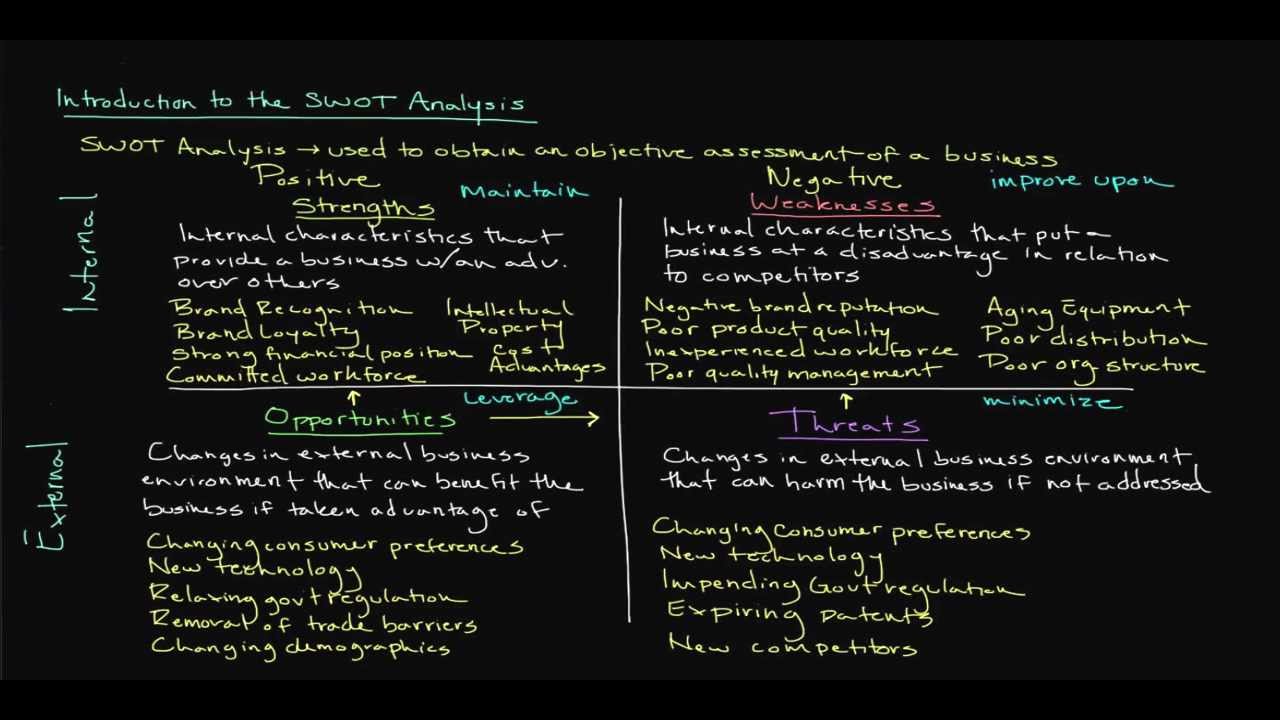 Introduction to the SWOT Analysis
SWOT Analysis → used to obtain an objective assessment of a business
Positive
Maintain
Strengths
Internal
Internal characteristics that
provide a business w/an adv.
over others
Brand Recognition
Brand Loyalty
Strong financial position
Committed workforce
Intellectual
Property
Cost
Advantages
Negative
improve upon
Weaknesses
Internal characteristics that put a
business at a disadvantage in relation
to competitors
Negative brand reputation
Poor product quality
Inexperienced workforce
Poor quality management
Aging Equipment
Poor distribution
Poor org structure
↑
Leverage
Opportunities →
External
Changes in external business
environment that can benefit the
business if taken advantage of
Changing consumer preferences
New technology
Relaxing gov't regulation
Removal of trade barriers
Changing demographics
↑
minimize
Threats
Changes in external business environment
that can harm the business if not addressed
Changing Consumer preferences
New technology
Impending Gov't regulation
Expiring patents
New competitors